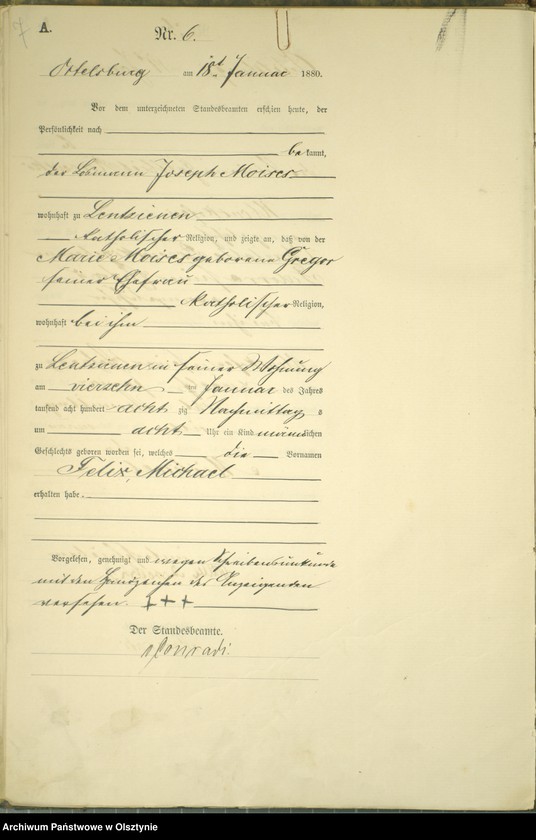 A.
7
Nr. 6.
Ortelsburg am 18t Januar 1880.
Vor dem unterzeichneten Standesbeamten erschien heute, der
Persönlichkeit nach
bekannt,
der Losmann Joseph Moises
wohnhaft zu Lentzienen
katholischer Religion, und zeigte an, daß von der
Marie Moises geborene Gregor
seiner Ehefrau
katholischer Religion,
wohnhaft bei ihm
zu Lentzienen in seiner Wohnung
am vierzehn ten Januar des Jahres
tausend acht hundert acht zig Nachmittags
um acht Uhr ein Kind männlichen
Geschlechts geboren worden sei, welches die Vornamen
Felix, Michael
erhalten habe.
Vorgelesen, genehmigt und wegen Schreibensunkunde
mit den Handzeichen des Anzeigenden
versehen. +++
Der Standesbeamte.
Conradi.
Archiwum Państwowe w Olsztynie